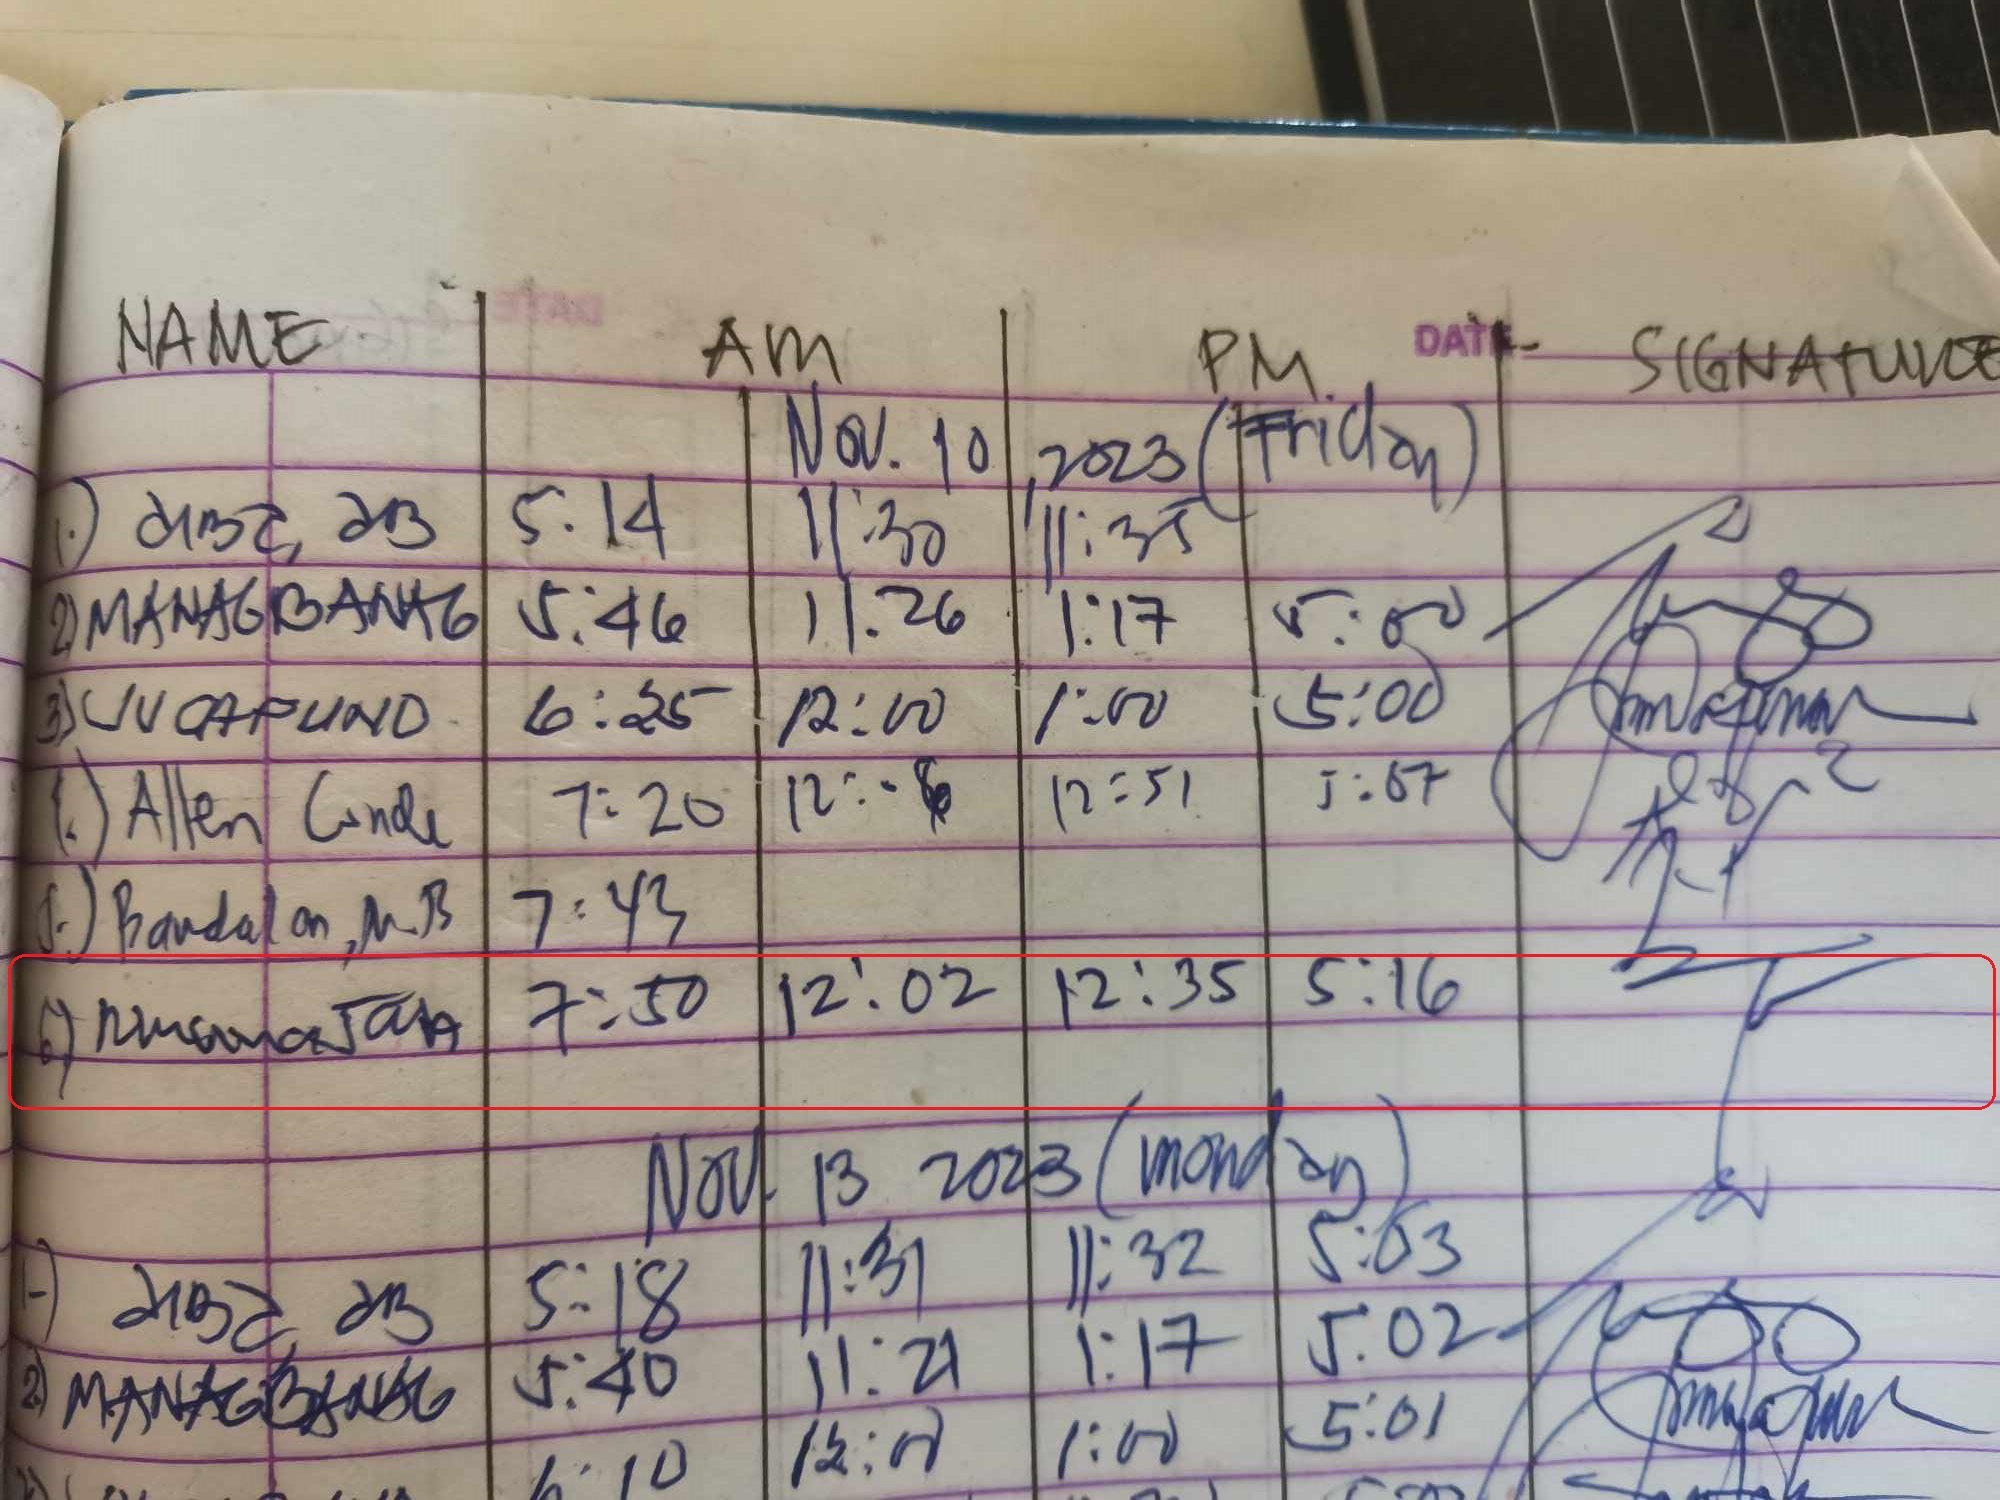 DATE
NAME AM PM SIGNATURE
Nov. 10, 2023 (Friday)
1.) 5:14 11:30 11:35
2) MANAGBANAG 5:46 11:26 1:17 5:00
3) 6:25 12:00 1:00 5:00
Allen Conde 7:20 12:51 5:07
5.) Bandalan, M.B 7:43
6) 7:50 12:02 12:35 5:16
Nov. 13 2023 (monday)
1-) 5:18 11:31 11:32 5:03
2) MANAGBANAG 5:40 11:21 1:17 5:02
6:10 12:00 1:00 5:01